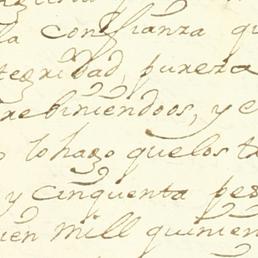 la confianza qu
tegridad, pureza
rebiniendoos, y e
lo hago que los tr
y cinquenta pes
uien mill quinien